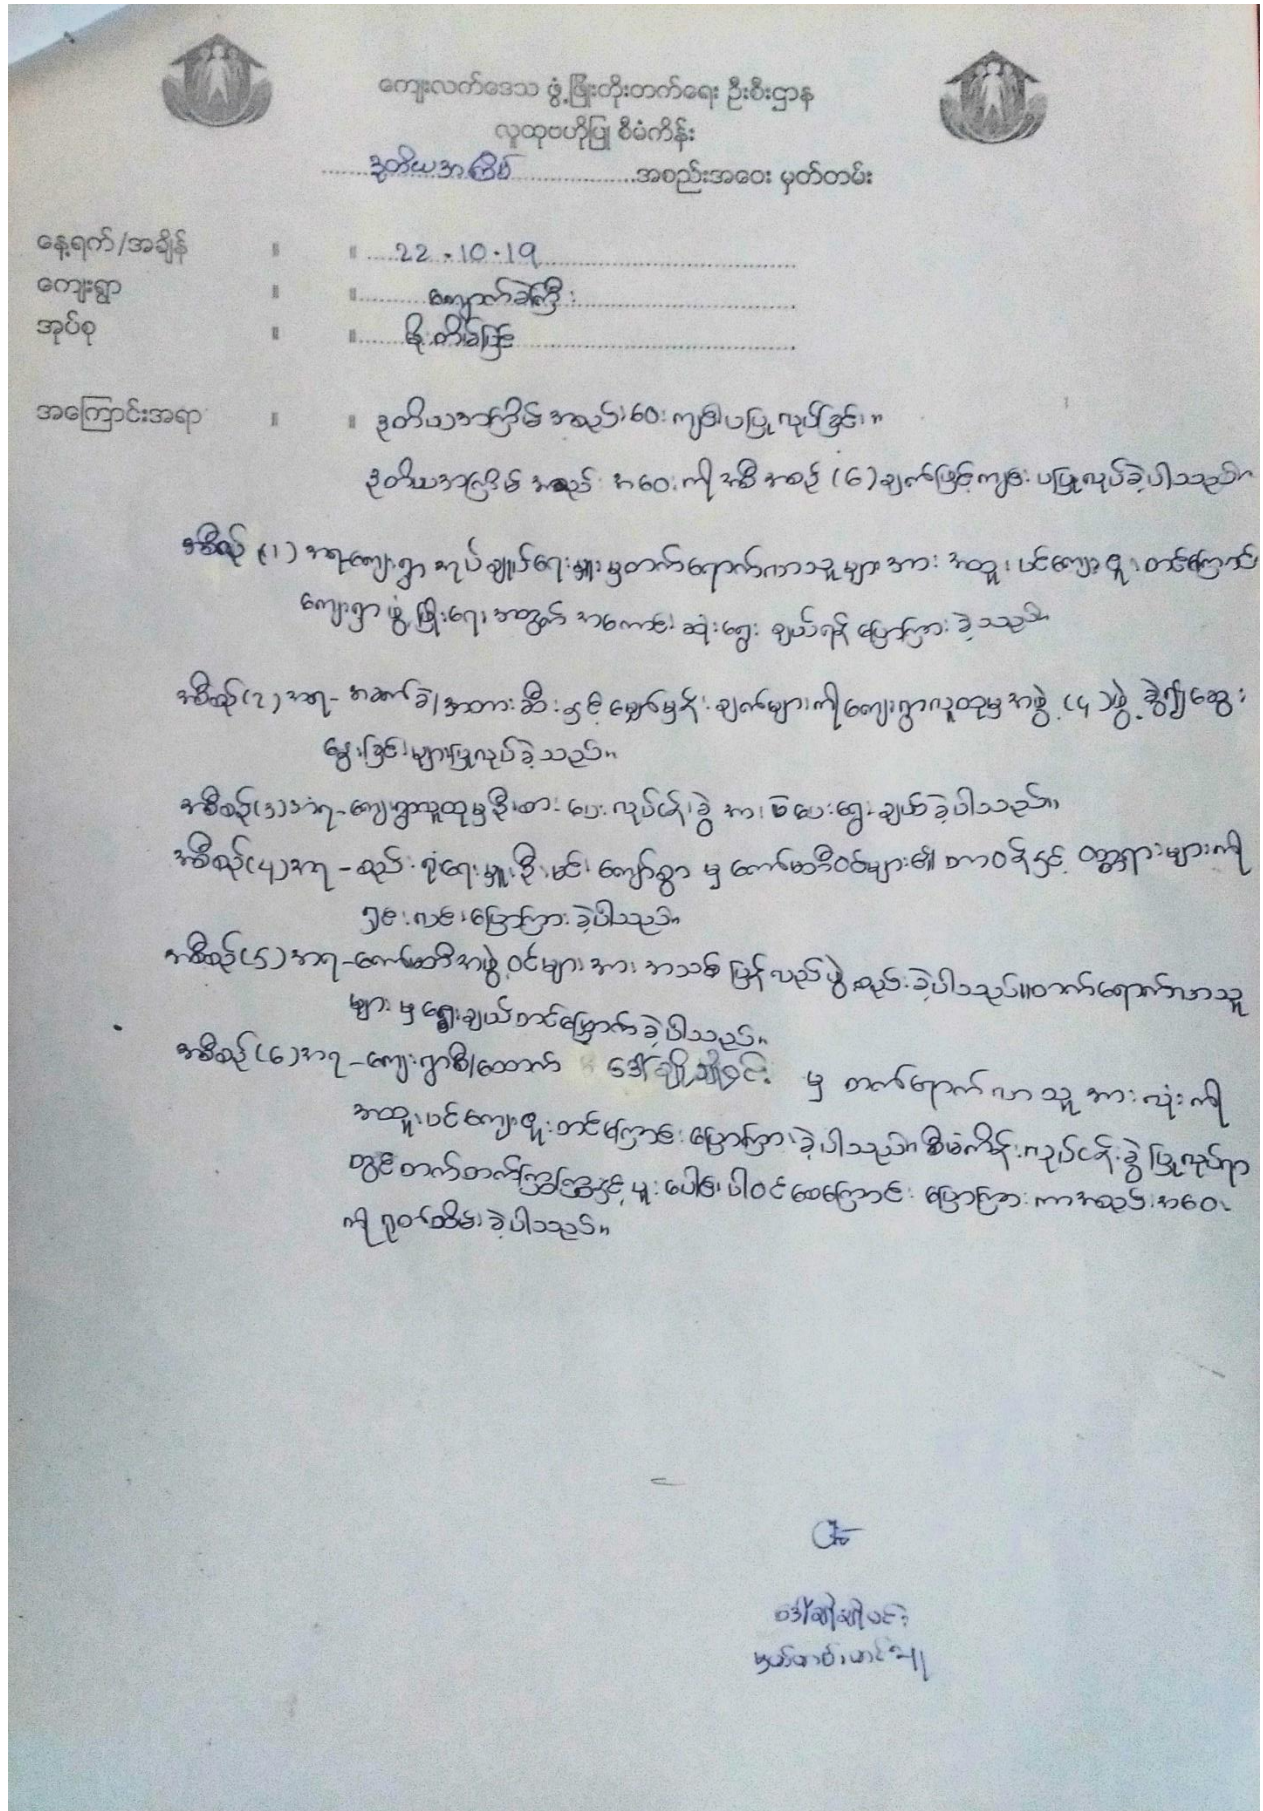 ကျေးလက်ဒေသ ဖွံ့ဖြိုးတိုးတက်ရေး ဦးစီးဌာန
လူထုဗဟိုပြု စီမံကိန်း
ဒုတိယအကြိမ် အစည်းအဝေး မှတ်တမ်း
နေ့ရက်/အချိန် ။ ။ 22.10.19
ကျေးရွာ ။ ။ ကျောက်ခဲကြီး
အုပ်စု ။ ။
အကြောင်းအရာ ။ ။ ဒုတိယအကြိမ် အစည်းအဝေး ကျင်းပပြုလုပ်ခြင်း။
ဒုတိယအကြိမ် အစည်း အဝေးကို အစီအစဉ် (၆) ချက်ဖြင့် ကျင်းပပြုလုပ်ခဲ့ပါသည်။
အစီစဉ် (၁) အရ ကျေးရွာ အုပ်ချုပ်ရေးမှူးမှ တက်ရောက်လာသူများအား အထူးပင်ကျေးဇူးတင်ကြောင်း
ကျေးရွာ ဖွံ့ဖြိုးရေး အတွက် အကောင်းဆုံးရွေး ချယ်ရန် ပြောကြား ခဲ့သည်။
အစီစဉ် (၂) အရ - အခက်ခဲ/အတားဆီးနှင့် မျှော်မှန်းချက်များကို ကျေးရွာလူထုမှ အဖွဲ့ (၄) ဖွဲ့ ခွဲ၍ ဆွေး
နွေးခြင်းများပြုလုပ်ခဲ့သည်။
အစီစဉ် (၃) အရ - ကျေးရွာလူထုမှ ဦးစားပေး လုပ်ငန်းခွဲ အား မဲပေးရွေးချယ်ခဲ့ပါသည်။
အစီစဉ် (၄) အရ - စည်းရုံးရေးမှူး ဦးမင်းကျော်စွာ မှ ကော်မတီဝင်များ၏ တာဝန်နှင့် ဝတ္တရားများကို
ရှင်းလင်းပြောကြားခဲ့ပါသည်။
အစီစဉ် (၅) အရ - ကော်မတီအဖွဲ့ဝင်များအား အသစ်ပြန်လည်ဖွဲ့စည်းခဲ့ပါသည်။ တက်ရောက်လာသူ
များ မှ ရွေးချယ်တင်မြှောက်ခဲ့ပါသည်။
အစီစဉ် (၆) အရ - ကျေးရွာစီ/ထောက် ဒေါ်ချိုချိုဝင်း မှ တက်ရောက်လာသူ အားလုံးကို
အထူးပင်ကျေးဇူးတင်ကြောင်းပြောကြားခဲ့ပါသည်။ စီမံကိန်းလုပ်ငန်းခွဲပြုလုပ်ရာ
တွင် တက်တက်ကြွကြွနှင့် ပူးပေါင်းပါဝင်စေကြောင်း ပြောကြားကာ အစည်းအဝေး
ကို ရုတ်သိမ်းခဲ့ပါသည်။